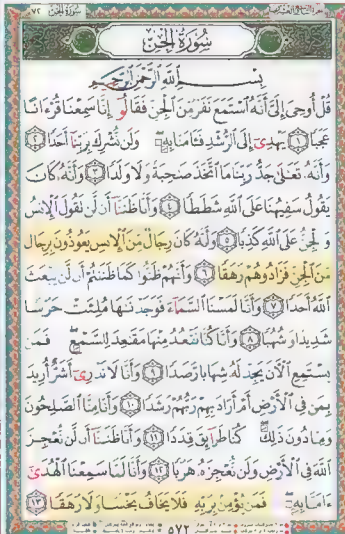 ٧٢ سورة الجن
الجزء التاسع والعشرون
سُورَةُ الْجِنِّ
بِسْمِ اللَّهِ الرَّحْمَٰنِ الرَّحِيمِ
قُلْ أُوحِيَ إِلَيَّ أَنَّهُ اسْتَمَعَ نَفَرٌ مِّنَ الْجِنِّ فَقَالُوا إِنَّا سَمِعْنَا قُرْءَانًا
عَجَبًا ﴿١﴾ يَهْدِي إِلَى الرُّشْدِ فَـَٔامَنَّا بِهِۦ وَلَن نُّشْرِكَ بِرَبِّنَا أَحَدًا ﴿٢﴾
وَأَنَّهُ تَعَالَىٰ جَدُّ رَبِّنَا مَا اتَّخَذَ صَاحِبَةً وَلَا وَلَدًا ﴿٣﴾ وَأَنَّهُ كَانَ
يَقُولُ سَفِيهُنَا عَلَى اللَّهِ شَطَطًا ﴿٤﴾ وَأَنَّا ظَنَنَّا أَن لَّن تَقُولَ الْإِنسُ
وَالْجِنُّ عَلَى اللَّهِ كَذِبًا ﴿٥﴾ وَأَنَّهُ كَانَ رِجَالٌ مِّنَ الْإِنسِ يَعُوذُونَ بِرِجَالٍ
مِّنَ الْجِنِّ فَزَادُوهُمْ رَهَقًا ﴿٦﴾ وَأَنَّهُمْ ظَنُّوا كَمَا ظَنَنتُمْ أَن لَّن يَبْعَثَ
اللَّهُ أَحَدًا ﴿٧﴾ وَأَنَّا لَمَسْنَا السَّمَآءَ فَوَجَدْنَاهَا مُلِئَتْ حَرَسًا
شَدِيدًا وَشُهُبًا ﴿٨﴾ وَأَنَّا كُنَّا نَقْعُدُ مِنْهَا مَقَاعِدَ لِلسَّمْعِ فَمَن
يَسْتَمِعِ الْآنَ يَجِدْ لَهُ شِهَابًا رَّصَدًا ﴿٩﴾ وَأَنَّا لَا نَدْرِي أَشَرٌّ أُرِيدَ
بِمَن فِي الْأَرْضِ أَمْ أَرَادَ بِهِمْ رَبُّهُمْ رَشَدًا ﴿١٠﴾ وَأَنَّا مِنَّا الصَّالِحُونَ
وَمِنَّا دُونَ ذَٰلِكَ كُنَّا طَرَآئِقَ قِدَدًا ﴿١١﴾ وَأَنَّا ظَنَنَّا أَن لَّن نُّعْجِزَ
اللَّهَ فِي الْأَرْضِ وَلَن نُّعْجِزَهُ هَرَبًا ﴿١٢﴾ وَأَنَّا لَمَّا سَمِعْنَا الْهُدَىٰ
ءَامَنَّا بِهِۦ فَمَن يُؤْمِن بِرَبِّهِ فَلَا يَخَافُ بَخْسًا وَلَا رَهَقًا ﴿١٣﴾
٥٧٢